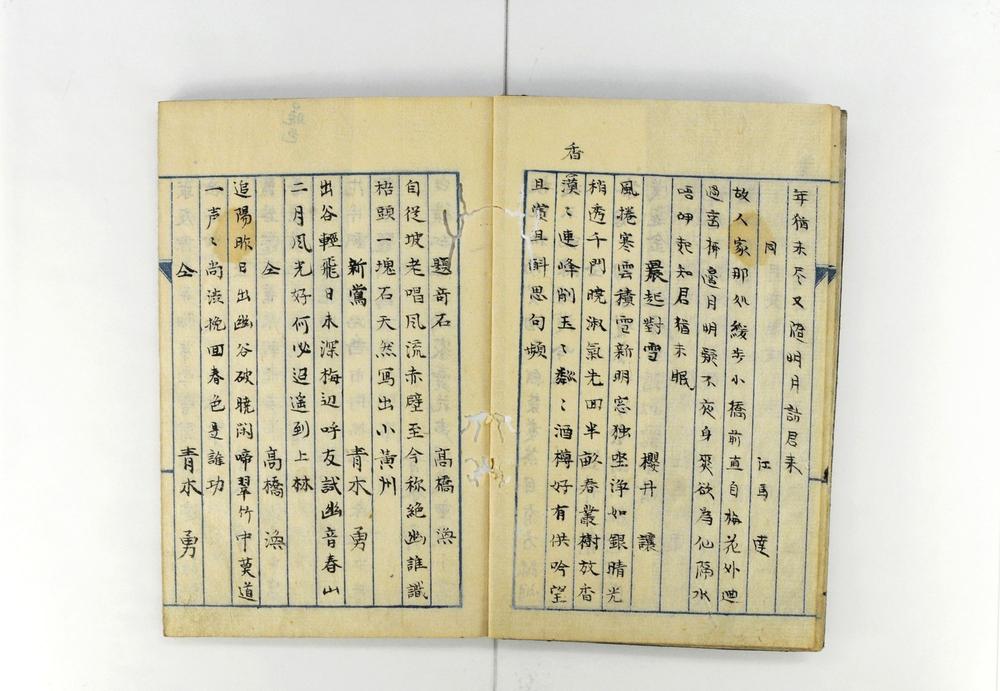 年猶未尽又隨明月訪君来
同 江馬 達
故人家那処緩歩小橋前直自梅花外廻
過窓梅邉月明疑不夜身爽欲為仙隔水
唔呻起知君猶未眠
晨起對雪 櫻井 讓
風捲寒雲積雪新明窓独坐浄如銀晴光
梢透千門暁淑氣先回半畝春叢樹放香
香
漠〻連峰削玉〻粼〻酒樽好有供吟望
且賞且斟思句頻
題奇石 髙橋 渙
自從坡老唱風流赤壁至今称絶幽誰識
枱頭一塊石天然寫出小黄州
新鶯 青木 勇
出谷輕飛日未深梅辺呼友試幽音春山
二月風光好何必迢遥到上林
仝 髙橋 渙
追陽昨日出幽谷破暁閑啼翠竹中莫道
一声〻尚澁挽回春色是誰功
仝 青木 勇